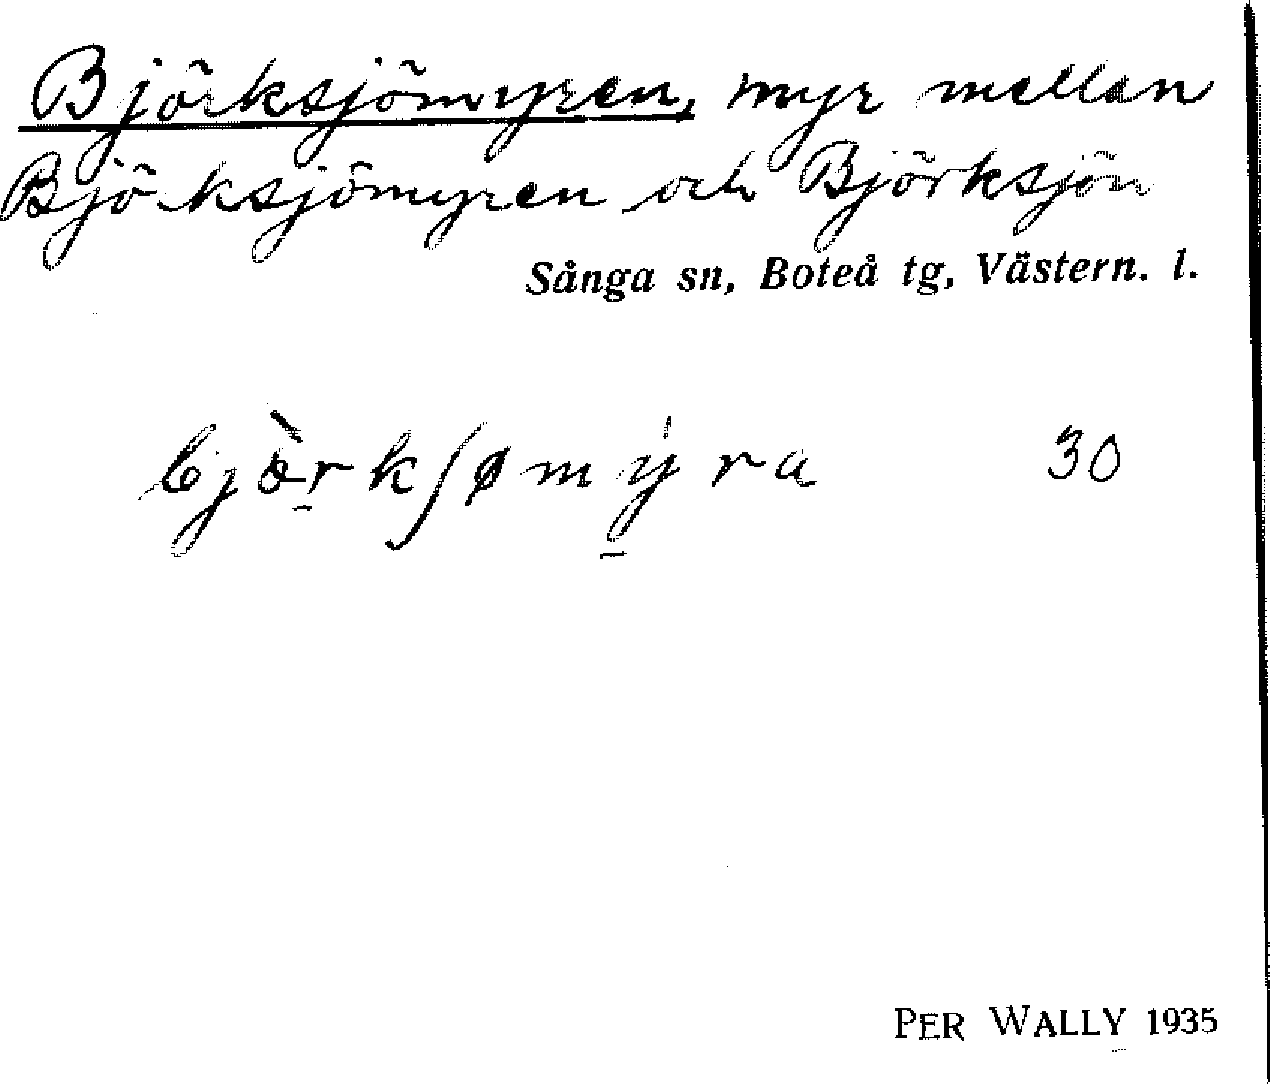 Björksjömyren, myr mellan
Björksjömyren och Björksjön
Sånga sn, Boteå tg, Västern. l.
bjœ̀r̠kʃømý̠ra 30
PER WALLY 1935